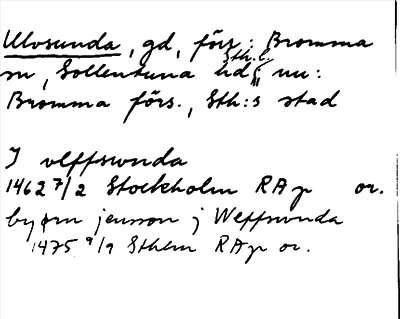 Ulvsunda, gd, förr: Bromma
sn, Sollentuna hd, Sth. l.; nu:
Bromma förs., Sth:s stad
J vlffswnda
1462 7/2 Stockholm RAp or.
byørn jensson j Weffswnda
1475 9/9 Sthlm RAp or.